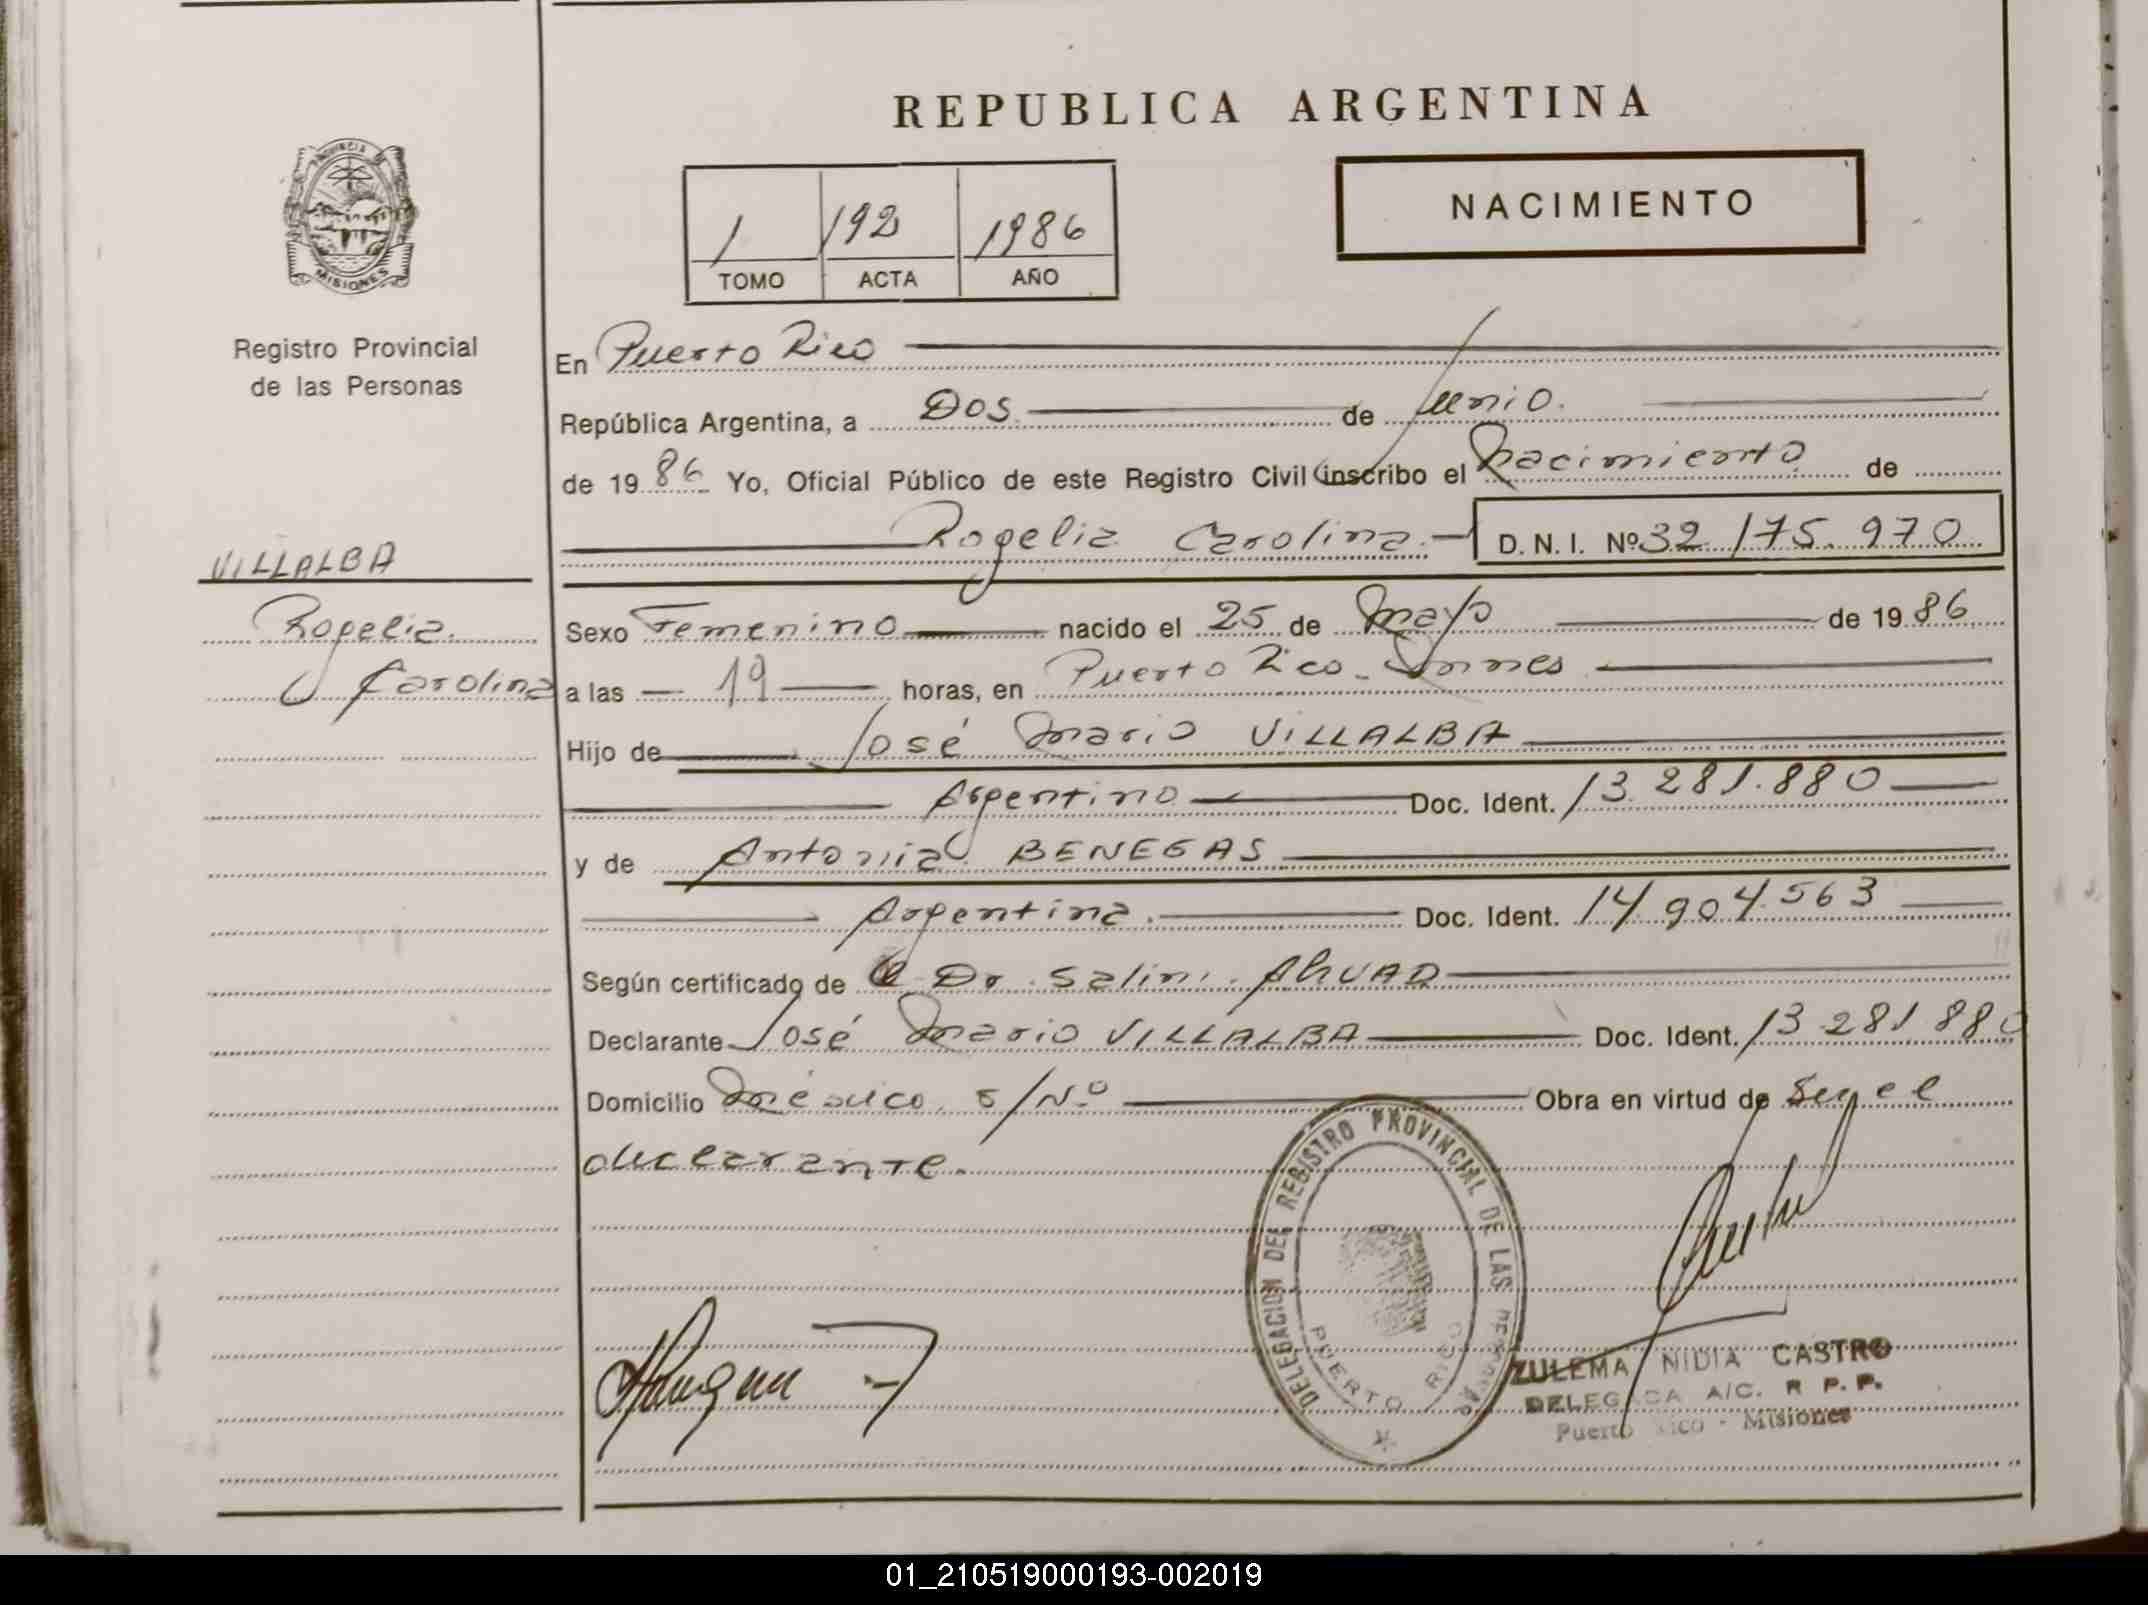 REPUBLICA ARGENTINA
PROVINCIA DE
MISIONES
Registro Provincial
de las Personas
1 192 1986
TOMO ACTA AÑO
NACIMIENTO
En Puerto Rico
República Argentina, a Dos de Junio.
de 1986 Yo, Oficial Público de este Registro Civil inscribo el Nacimiento de
Rogelia Carolina. D. N. I. Nº 32 175.970
VILLALBA
Rogelia
Carolina
Sexo Femenino nacido el 25 de Mayo de 1986
a las 19 horas, en Puerto Rico - Mnes
Hijo de José Mario VILLALBA
Argentino Doc. Ident. 13.281.880
y de Antonia BENEGAS
Argentina. Doc. Ident. 14.904.563
Según certificado de Dr. Salim AhUAD
Declarante José Mario VILLALBA Doc. Ident. 13 281 880
Domicilio México s/Nº Obra en virtud de ser el
declarante.
DELEGACION DEL REGISTRO PROVINCIAL DE LAS PERSONAS
PUERTO RICO
ZULEMA NIDIA CASTRO
DELEGADA A/C. R P. P.
Puerto Rico - Misiones
01_210519000193-002019